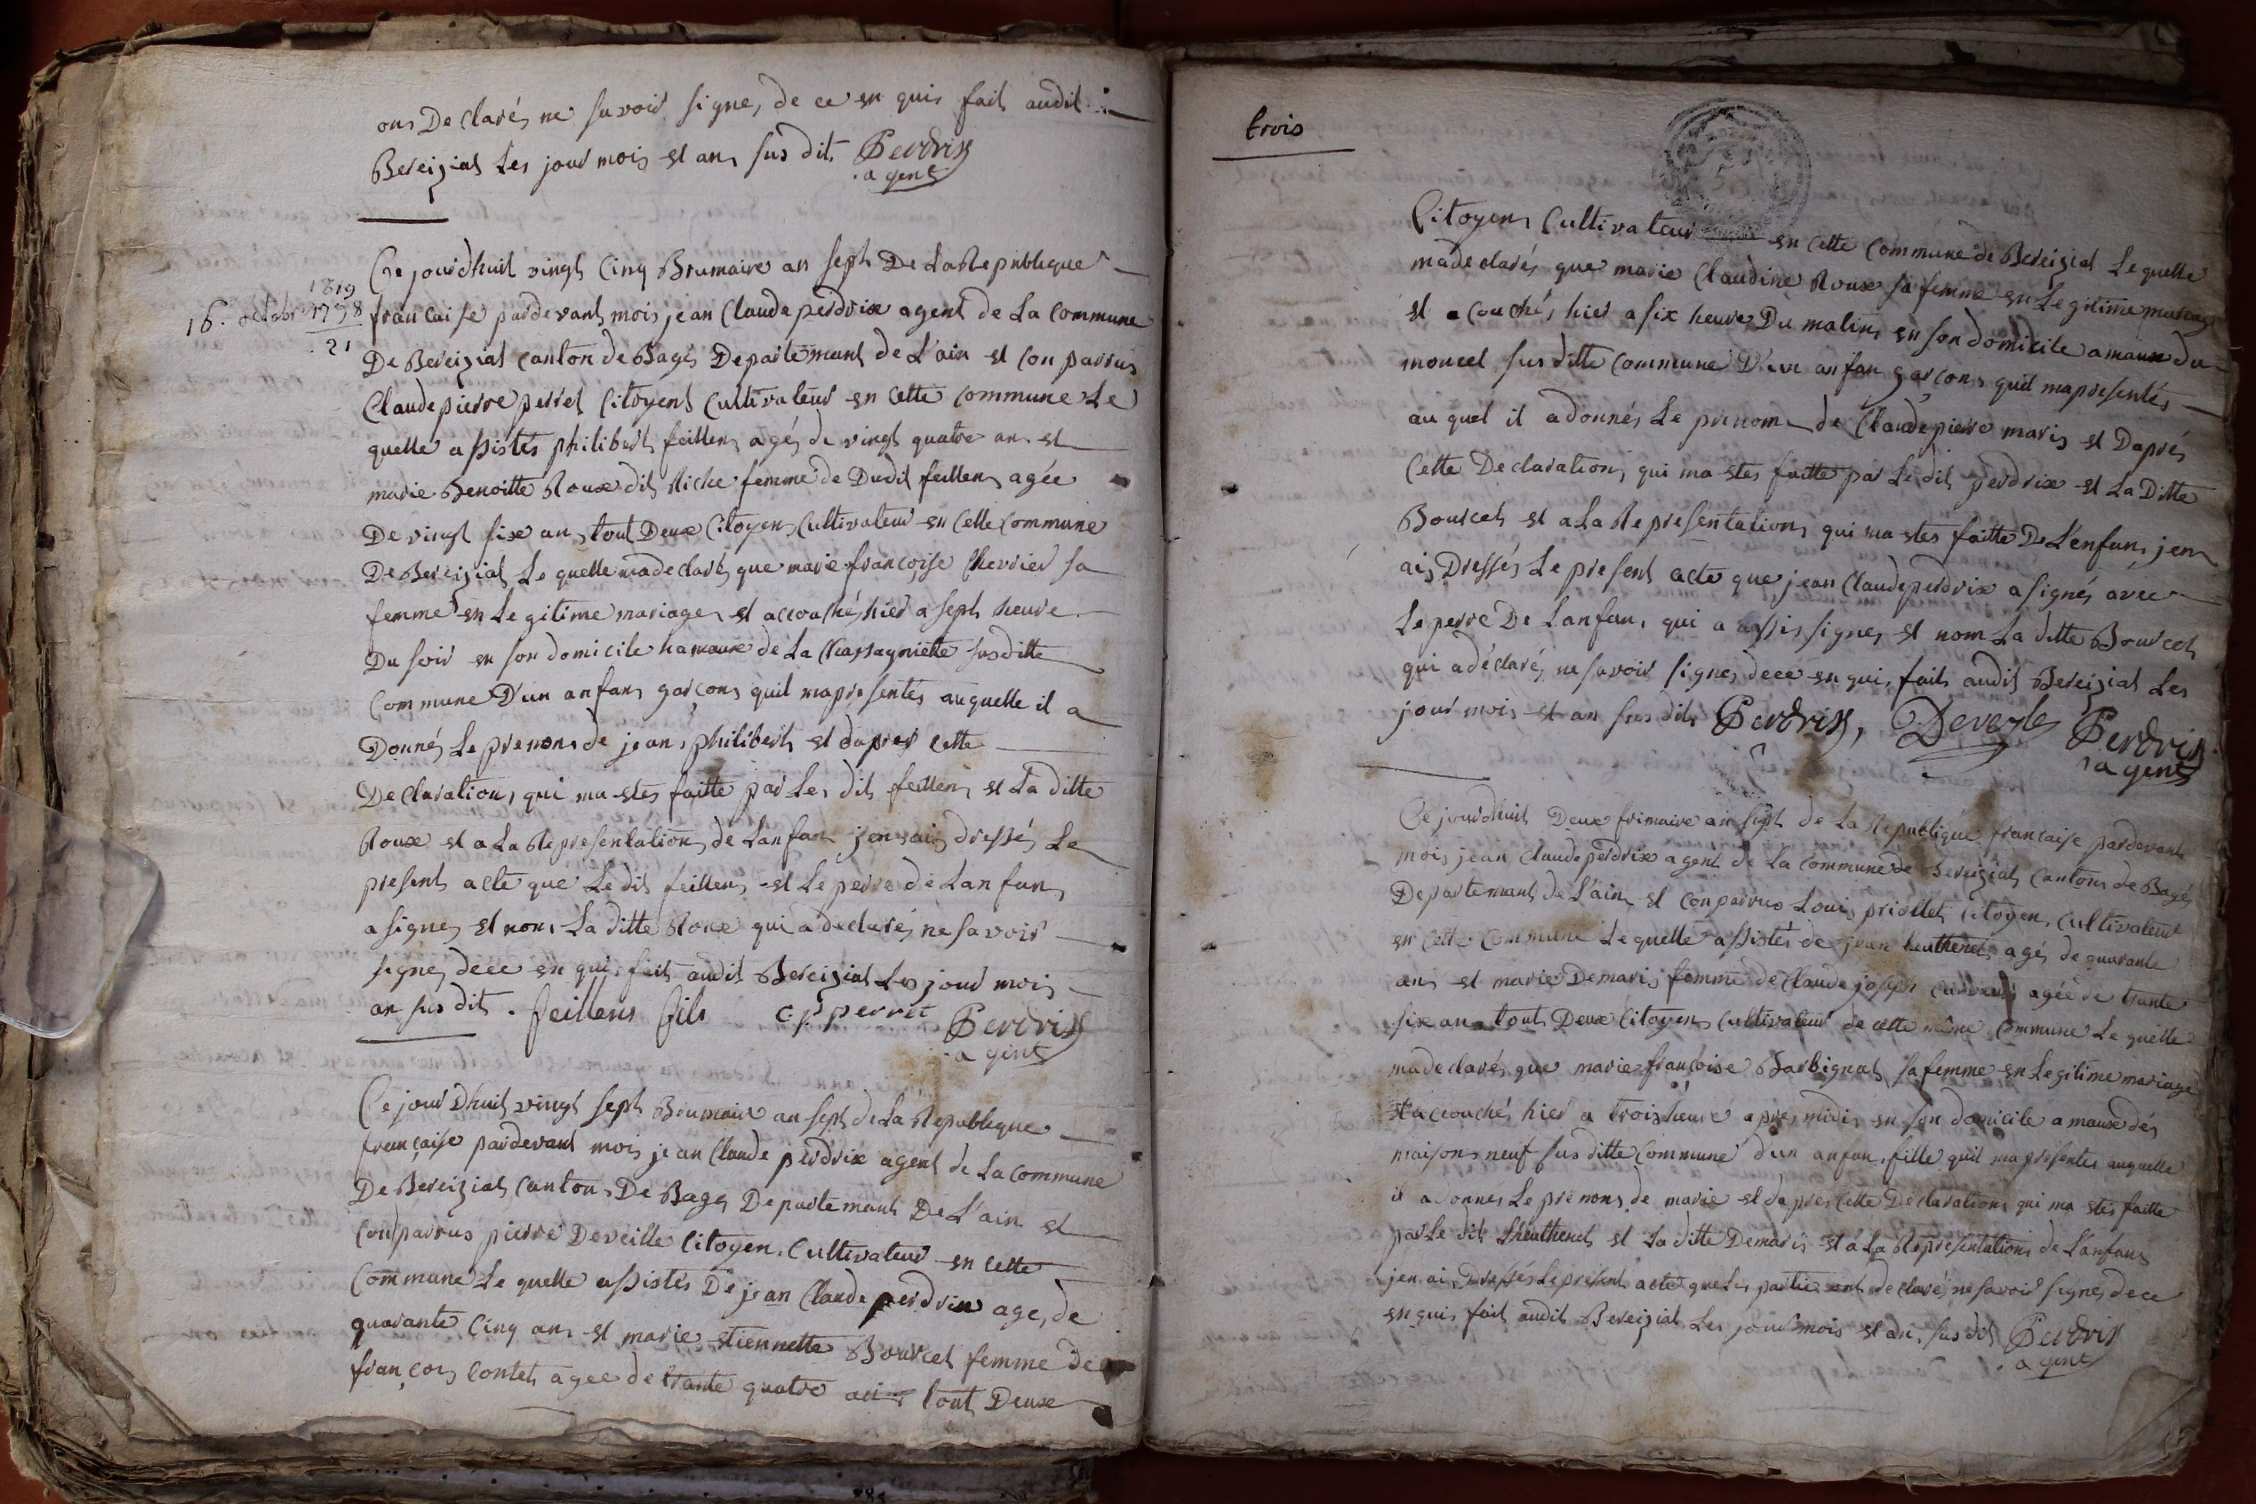 ons Declarés ne savoir signe, de ce en quis fait audit
Bereiziat Les jour mois et ans sus dit Perdrix
agent
Ce jourdhuit vingt Cinq Brumaire an sept De La Republique
1819
16. octobr 1798
21
francaise pardevant mois jean Claude perdrix agent de La Commune
De Bereiziat canton de Bagés Departemant de L'ain et Conparrus
Claude pierre perret Citoyent Cultivateur en cette commune Le
quelle assistés philibert feillens agés de vingt quatre ans et
marie Benoitte Roux dit Riche femme de Dudit feillens agée
De vingt six ans tout Deux Citoyens Cultivateur en cette Commune
De Bereiziat Le quelle madeclarés que marie francoise Chevrier sa
femme en Legitime mariage et accouchés hier a sept heure
Du soir en son domicile hamaux de La Chassagniette susditte
Commune D'un anfans garçons quil mapresentés auquelle il a
Donnés Le prenons de jean philibert et dapres Cette
Declarations qui ma etes faitte par Les dit feillens et La ditte
Roux et a La Representations de Lanfan jen ais dressés Le
present acte que Le dit feillens et Le perre de Lanfans
a signes et nons La ditte Roux qui a declarés ne savoir
signes dece en quis fait audit Bereiziat Les jour mois
an sus dit. feillens fils C. p perret Perdrix
agent
Ce jour Dhuit vingt sept Brumaire an sept de La Republeque
française pardevant mois jean Claude perdrix agent de La Commune
De Bereiziat Canton De Bages Departemant De L'ain et
Conparrus pierre Deveille Citoyen Cultivateur en cette
Commune Le quelle assistés De jean Claude perdrix age, de
quarante Cinq ans et marie etiennette Bourcet femme de
françois Contet agee de trante quatre ans tout Deux
trois
Citoyens Cultivateur en cette Commune de Bereiziat Le quelle
madeclarés que marie Claudine Roux sa femme en Legitime mariage
et acouchés hier a six heures Du matins en son domicile amaux du
moucel sus ditte Commune D'un anfan garçons quil mapresentés
au quel il adonnés Le prenom de Claude pierre maris et Daprés
Cette Declarations qui ma etes faitte par Le dit perdrix et La Ditte
Bourcet et a La Representations qui ma etes faitte De L'enfans jen
ais Dressés Le present acte que jean Claude perdrix a signés avec
Le perre De Lanfans qui a aussis signes et nom La ditte Bourcet
qui adéclarés ne savoir signes dece en quis fait audit Bereiziat Les
jour mois et an sus dits Perdrix, Deveyle Perdrix
agent
Ce jourdhuit Deux frimaire an sept de La Republique francaise pardevant
mois jean Claude perdrix agent de La Commune de Bereiziat Cantons de Bagés
Departemant de L'ain et Conparrus Louis priollet Citoyen Cultivateur
en Cette Commune Le quelle assistés de jean heuthenet agés de quarante
ans et marie Demaris femme de Claude joseph agée de trante
six ans tout Deux Citoyens Cultivateur de cette même Commune Le quelle
madeclarés que marie françoise Barbignat sa femme en Legitime mariage
et accouchés hier a trois heure apres midis en son domicile amaux dés
maisons neuf sus ditte Commune d'un anfan fille quil mapresentes auquelle
il adonnés Le prénons de marie et dapres Cette Déclarations qui ma etés faitte
par Le dit heuthenet et La ditte Demaris et a La Representations de L'anfans
jen ai Dressés Le present acte que Les partie ont declarés ne savoir signes dece
en quis fait audit Bereiziat Les jour mois et an sus dit Perdrix
agent